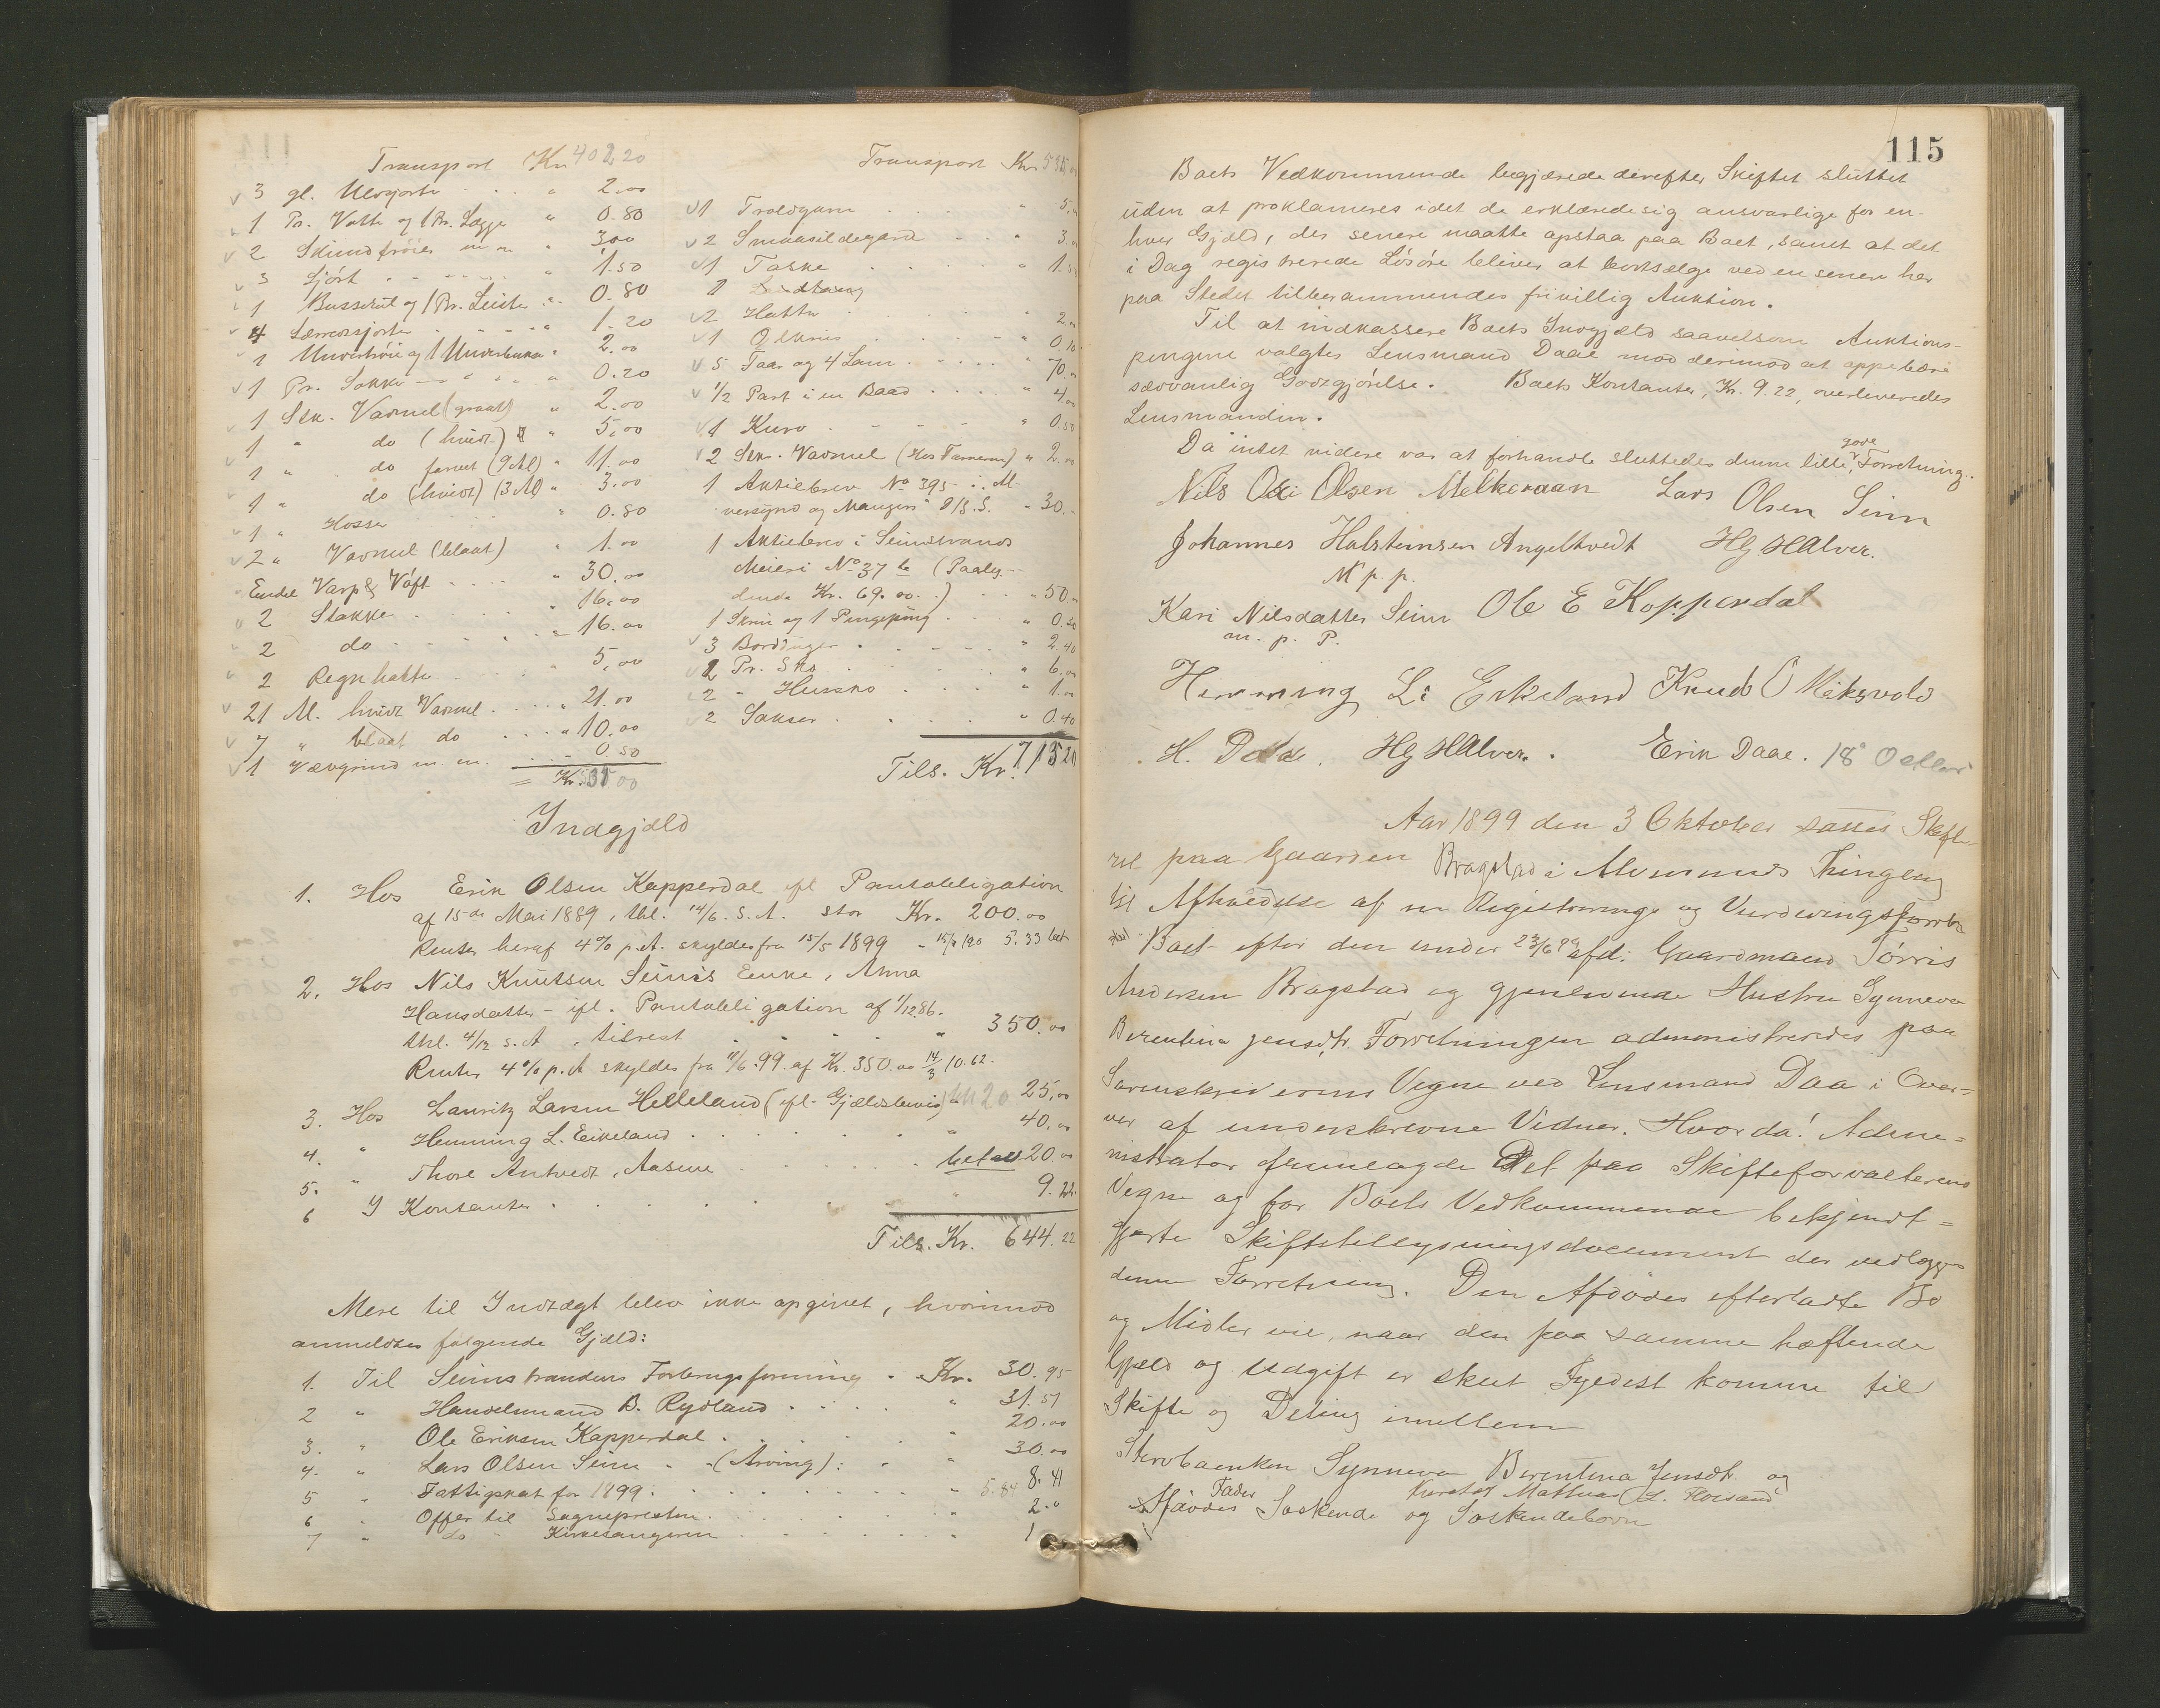 Transport Kr. 402 20
3 gl. Uldsjorte " 2.00
1 Pr. Votte og 1 Pr. Lægge " 0.80
2 Skindtrøier m. m. " 3.00
3 Sjört " 1.50
1 Busserul og 1 Pr. Leiste " 0.80
4 Lærredssjorter " 1.20
1 Undertrøie og 1 Underbukse " 2.00
1 Pr. Sokke " 0.20
1 Stk. Vadmel (graat) " 2.00
1 " do (hvidt) " 5.00
1 " do farvet (9 Al) " 11.00
1 " do (hvidt) (3 Al) " 3.00
1 " Hosse " 0.80
2 " Vadmel (blaat) " 1.00
Endel Varp & Vöft " 30.00
2 Stakke " 16.00
2 do " 16.00
2 Regnhatte 5.00
21 Al. hvidt Vadmel " 21.00
7 " blaat do " 10.00
1 Vævgrind m. m. 0 50
= Kr. 535 00
Transport Kr. 535
1 Troldgarn " 5.
2 Smaasildegarn " 3.
1 Taske " 1.
1
2 Hatte " 2.
1 Ölkrus " 0.10
5 Faar og 4 Lam " 70.
1/2 Part i en Baad " 4.00
1 Kurv " 0.50
2 Stkr. Vadmel (Hos Farveren) " 2.
1 Aktiebrev No 395 i "Al
versund og Mangers" D/S. S. " 30.
1 Aktiebrev i Seimstrands
Meieri No 37 (Paaly-
dende Kr. 69.00.) " 50.
1 Skrin og 1 Pengepung " 0.20
3 Borduger " 2.40
2 Pr. Sko " 6.
2 " Hussko " 1.
2 Sakser " 0.40
Tils. Kr. 713 20
Indgjæld
1. Hos Erik Olsen Kapperdal ifl Pantobligation
af 15de Mai 1889, thl. 14/6. S. A. stor Kr. 200.00
Renter heraf 4% p.A. skyldes fra 15/5 1899 5.33 bet
2. Hos Nils Knutsen Seim's Enke, Anna
Hansdatter - ifl. Pantobligation af 1/12 86.
thl. 4/12 s. A, tilrest " 350.00
Renter 4% p. A skyldes fra 11/6. 99. af Kr. 350.00 14/3 10.62.
3. Hos Lauritz Larsen Helleland (ifl. Gjældsbevis) 25,00
4. " Henning L. Eikeland " 40.00
5. " Thore Antvedt, Aasene betalt 20.00
6 I Kontanter " 9.22
Tils. Kr. 644.22
Mere til Indtægt blev ikke opgivet, hvorimod
anmeldtes følgende Gjæld:
1. Til Seimstrandens Forbrugsforening Kr. 30.95
2 " Handelsmand B. Rydland " 31.51
3. " Ole Eriksen Kapperdal 20.00
4. " Lars Olsen Seim (Arving): " 30.00
5 " Fattigskat for 1899. " 5.84 8.41
6 " Offer til Sognepresten " 2.
7 " do " Kirkesangeren " 1
115
Boets Vedkommende begjærede derefter Skiftet sluttet
uden at proklameres idet de erklærede sig ansvarlige for en-
hver Gjæld, der senere maatte opstaa paa Boet, samt at det
i Dag registrerede Lösöre bliver at bortsælge ved en senere her
paa Stedet tilberammendes frivillig Auktion.
Til at indkassere Boets Indgjæld saavelsom Auktions-
pengene valgtes Lensmand Daae mod derimod at oppebære
sædvanlig Godtgjörelse. Boets Kontanter, Kr. 9.22, overleveredes
Lensmanden.
Da intet videre var at forhandle sluttedes denne lille, gode Forretning.
Nils Olsen Melkeraan Lars Olsen Seim
Johannes Halsteinsen Angeltvedt Hg HAlver.
M p. p.
Kari Nilsdatter Seim Ole E Kopperdal
m. p. P.
Henning L: Eikeland Knud O Miksvold
H. Hg HAlver. Erik Daae. 18
Aar 1899 den 3 Oktober sattes Skifte-
ret paa Gaarden Bragstad i Alversunds Thinglag
til Afholdelse af en Registrerings og Vurderingsforretn
Boet efter den under 23/6 99 afd: Gaardmand Törris
Andersen Bragstad og gjenlevende Hustru Synneva
Berentina Jensdtr. Forretningen administreredes paa
Sorenskriverens Vegne ved Lensmand Daa i Over-
vær af underskrevne Vidner. Hvorda! Admi-
nistrator fremlagde Det paa Skifteforvalterens
Vegne og for Boets Vedkommende bekjendt-
gjorte Skiftetellysningsdocument der vedlægges
denne Forretning. Den Afdödes efterladte Bo
og Midler vil, naar den paa samme hæftende
Gjæld og Udgift er skeet Fyldest komme til
Skifte og Deling imellem
Stervboenken Synneva Berentina Jensdt. og
Kurator Mathias L. Floisand
Afdödes Fader Söskende og Söskendebörn